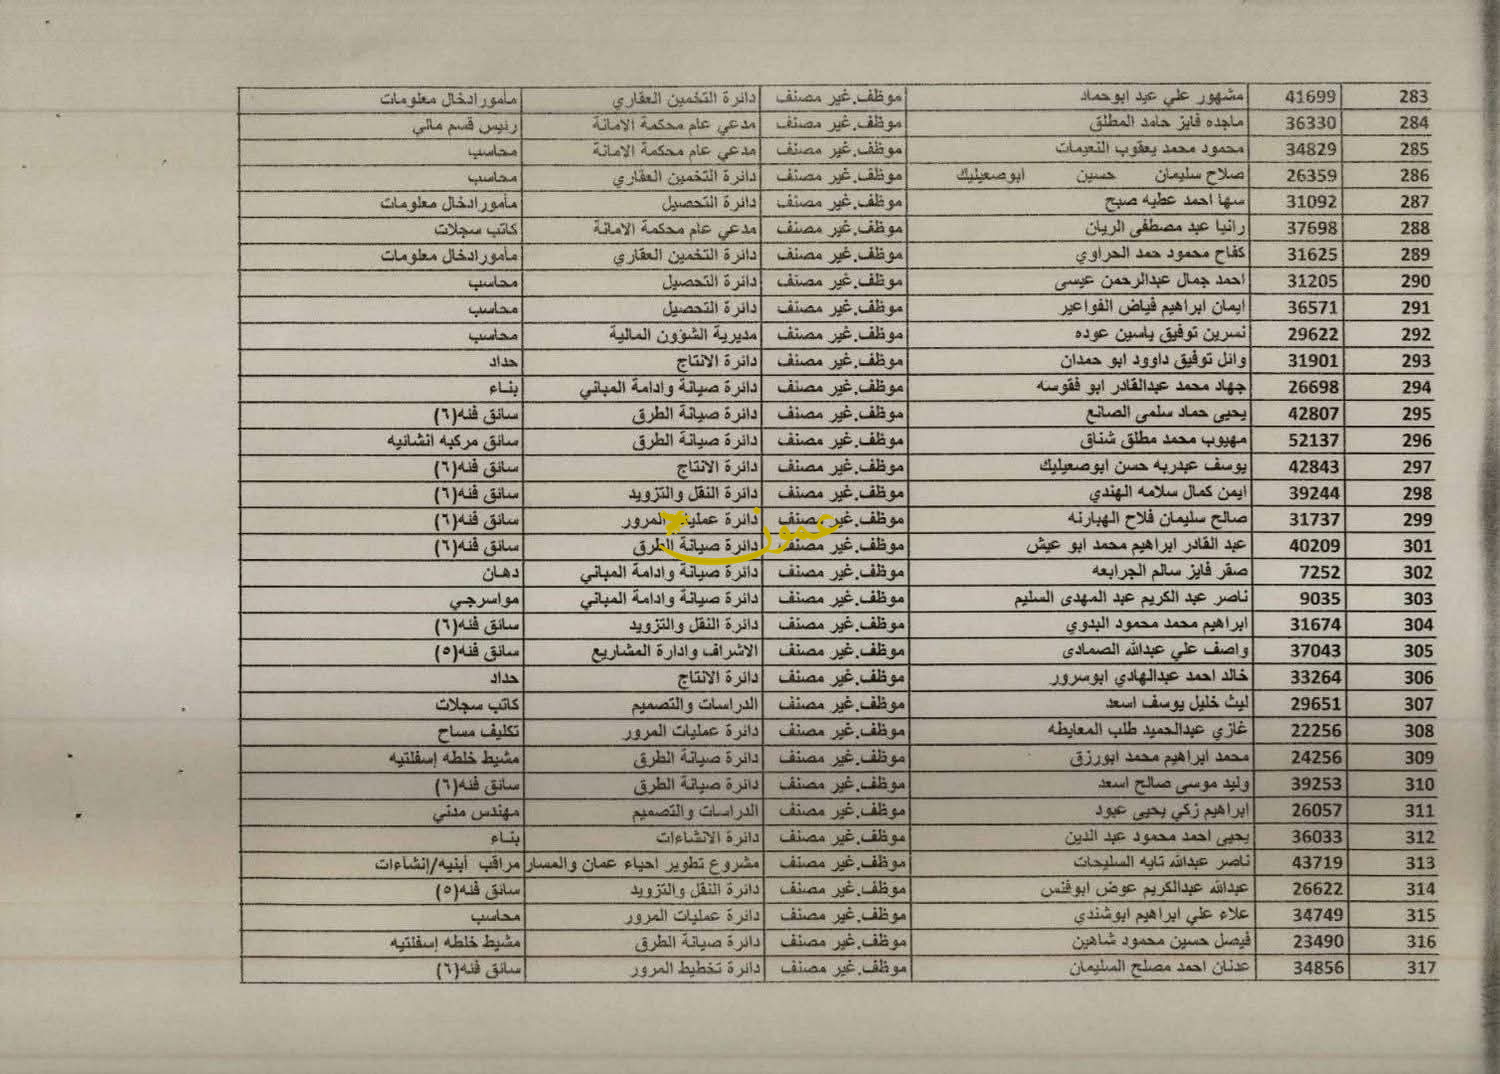 283 41699 مشهور علي عيد ابوحماد موظف.غير مصنف دائرة التخمين العقاري مأمورادخال معلومات
284 36330 ماجده فايز حامد المطلق موظف.غير مصنف مدعي عام محكمة الامانة رئيس قسم مالي
285 34829 محمود محمد يعقوب النعيمات موظف.غير مصنف مدعي عام محكمة الامانة محاسب
286 26359 صلاح سليمان حسين ابوصعيليك موظف.غير مصنف دائرة التخمين العقاري محاسب
287 31092 سها احمد عطيه صبح موظف.غير مصنف دائرة التحصيل مأمورادخال معلومات
288 37698 رانيا عبد مصطفى الريان موظف.غير مصنف مدعي عام محكمة الامانة كاتب سجلات
289 31625 كفاح محمود حمد الحراوي موظف.غير مصنف دائرة التخمين العقاري مأمورادخال معلومات
290 31205 احمد جمال عبدالرحمن عيسى موظف.غير مصنف دائرة التحصيل محاسب
291 36571 ايمان ابراهيم فياض الفواعير موظف.غير مصنف دائرة التحصيل محاسب
292 29622 نسرين توفيق ياسين عوده موظف.غير مصنف مديرية الشؤون المالية محاسب
293 31901 وائل توفيق داوود ابو حمدان موظف.غير مصنف دائرة الانتاج حداد
294 26698 جهاد محمد عبدالقادر ابو فقوسه موظف.غير مصنف دائرة صيانة وادامة المباني بناء
295 42807 يحيى حماد سلمى الصانع موظف.غير مصنف دائرة صيانة الطرق سائق فئه(٦)
296 52137 مهيوب محمد مطلق شناق موظف.غير مصنف دائرة صيانة الطرق سائق مركبه انشائيه
297 42843 يوسف عبدربه حسن ابوصعيليك موظف.غير مصنف دائرة الانتاج سائق فئه(٦)
298 39244 ايمن كمال سلامه الهندي موظف.غير مصنف دائرة النقل والتزويد سائق فئه(٦)
299 31737 صالح سليمان فلاح الهبارنه موظف.غير مصنف دائرة عمليات المرور سائق فئه(٦)
عمون
301 40209 عبد القادر ابراهيم محمد ابو عيش موظف.غير مصنف دائرة صيانة الطرق سائق فئه(٦)
302 7252 صقر فايز سالم الجرابعه موظف.غير مصنف دائرة صيانة وادامة المباني دهان
303 9035 ناصر عبد الكريم عبد المهدى السليم موظف.غير مصنف دائرة صيانة وادامة المباني مواسرجي
304 31674 ابراهيم محمد محمود البدوي موظف.غير مصنف دائرة النقل والتزويد سائق فئه(٦)
305 37043 واصف علي عبدالله الصمادى موظف.غير مصنف الاشراف وادارة المشاريع سائق فئه(٥)
306 33264 خالد احمد عبدالهادي ابوسرور موظف.غير مصنف دائرة الانتاج حداد
307 29651 ليث خليل يوسف اسعد موظف.غير مصنف الدراسات والتصميم كاتب سجلات
308 22256 غازي عبدالحميد طلب المعايطه موظف.غير مصنف دائرة عمليات المرور تكليف مساح
309 24256 محمد ابراهيم محمد ابورزق موظف.غير مصنف دائرة صيانة الطرق مشيط خلطه إسفلتيه
310 39253 وليد موسى صالح اسعد موظف.غير مصنف دائرة صيانة الطرق سائق فئه(٦)
311 26057 ابراهيم زكي يحيى عبود موظف.غير مصنف الدراسات والتصميم مهندس مدني
312 36033 يحيى احمد محمود عبد الدين موظف.غير مصنف دائرة الانشاءات بناء
313 43719 ناصر عبدالله تايه السليحات موظف.غير مصنف مشروع تطوير احياء عمان والمسار مراقب أبنيه/إنشاءات
314 26622 عبدالله عبدالكريم عوض ابوقنس موظف.غير مصنف دائرة النقل والتزويد سائق فئه(٥)
315 34749 علاء علي ابراهيم ابوشندي موظف.غير مصنف دائرة عمليات المرور محاسب
316 23490 فيصل حسين محمود شاهين موظف.غير مصنف دائرة صيانة الطرق مشيط خلطه إسفلتيه
317 34856 عدنان احمد مصلح السليمان موظف.غير مصنف دائرة تخطيط المرور سائق فئه(٦)